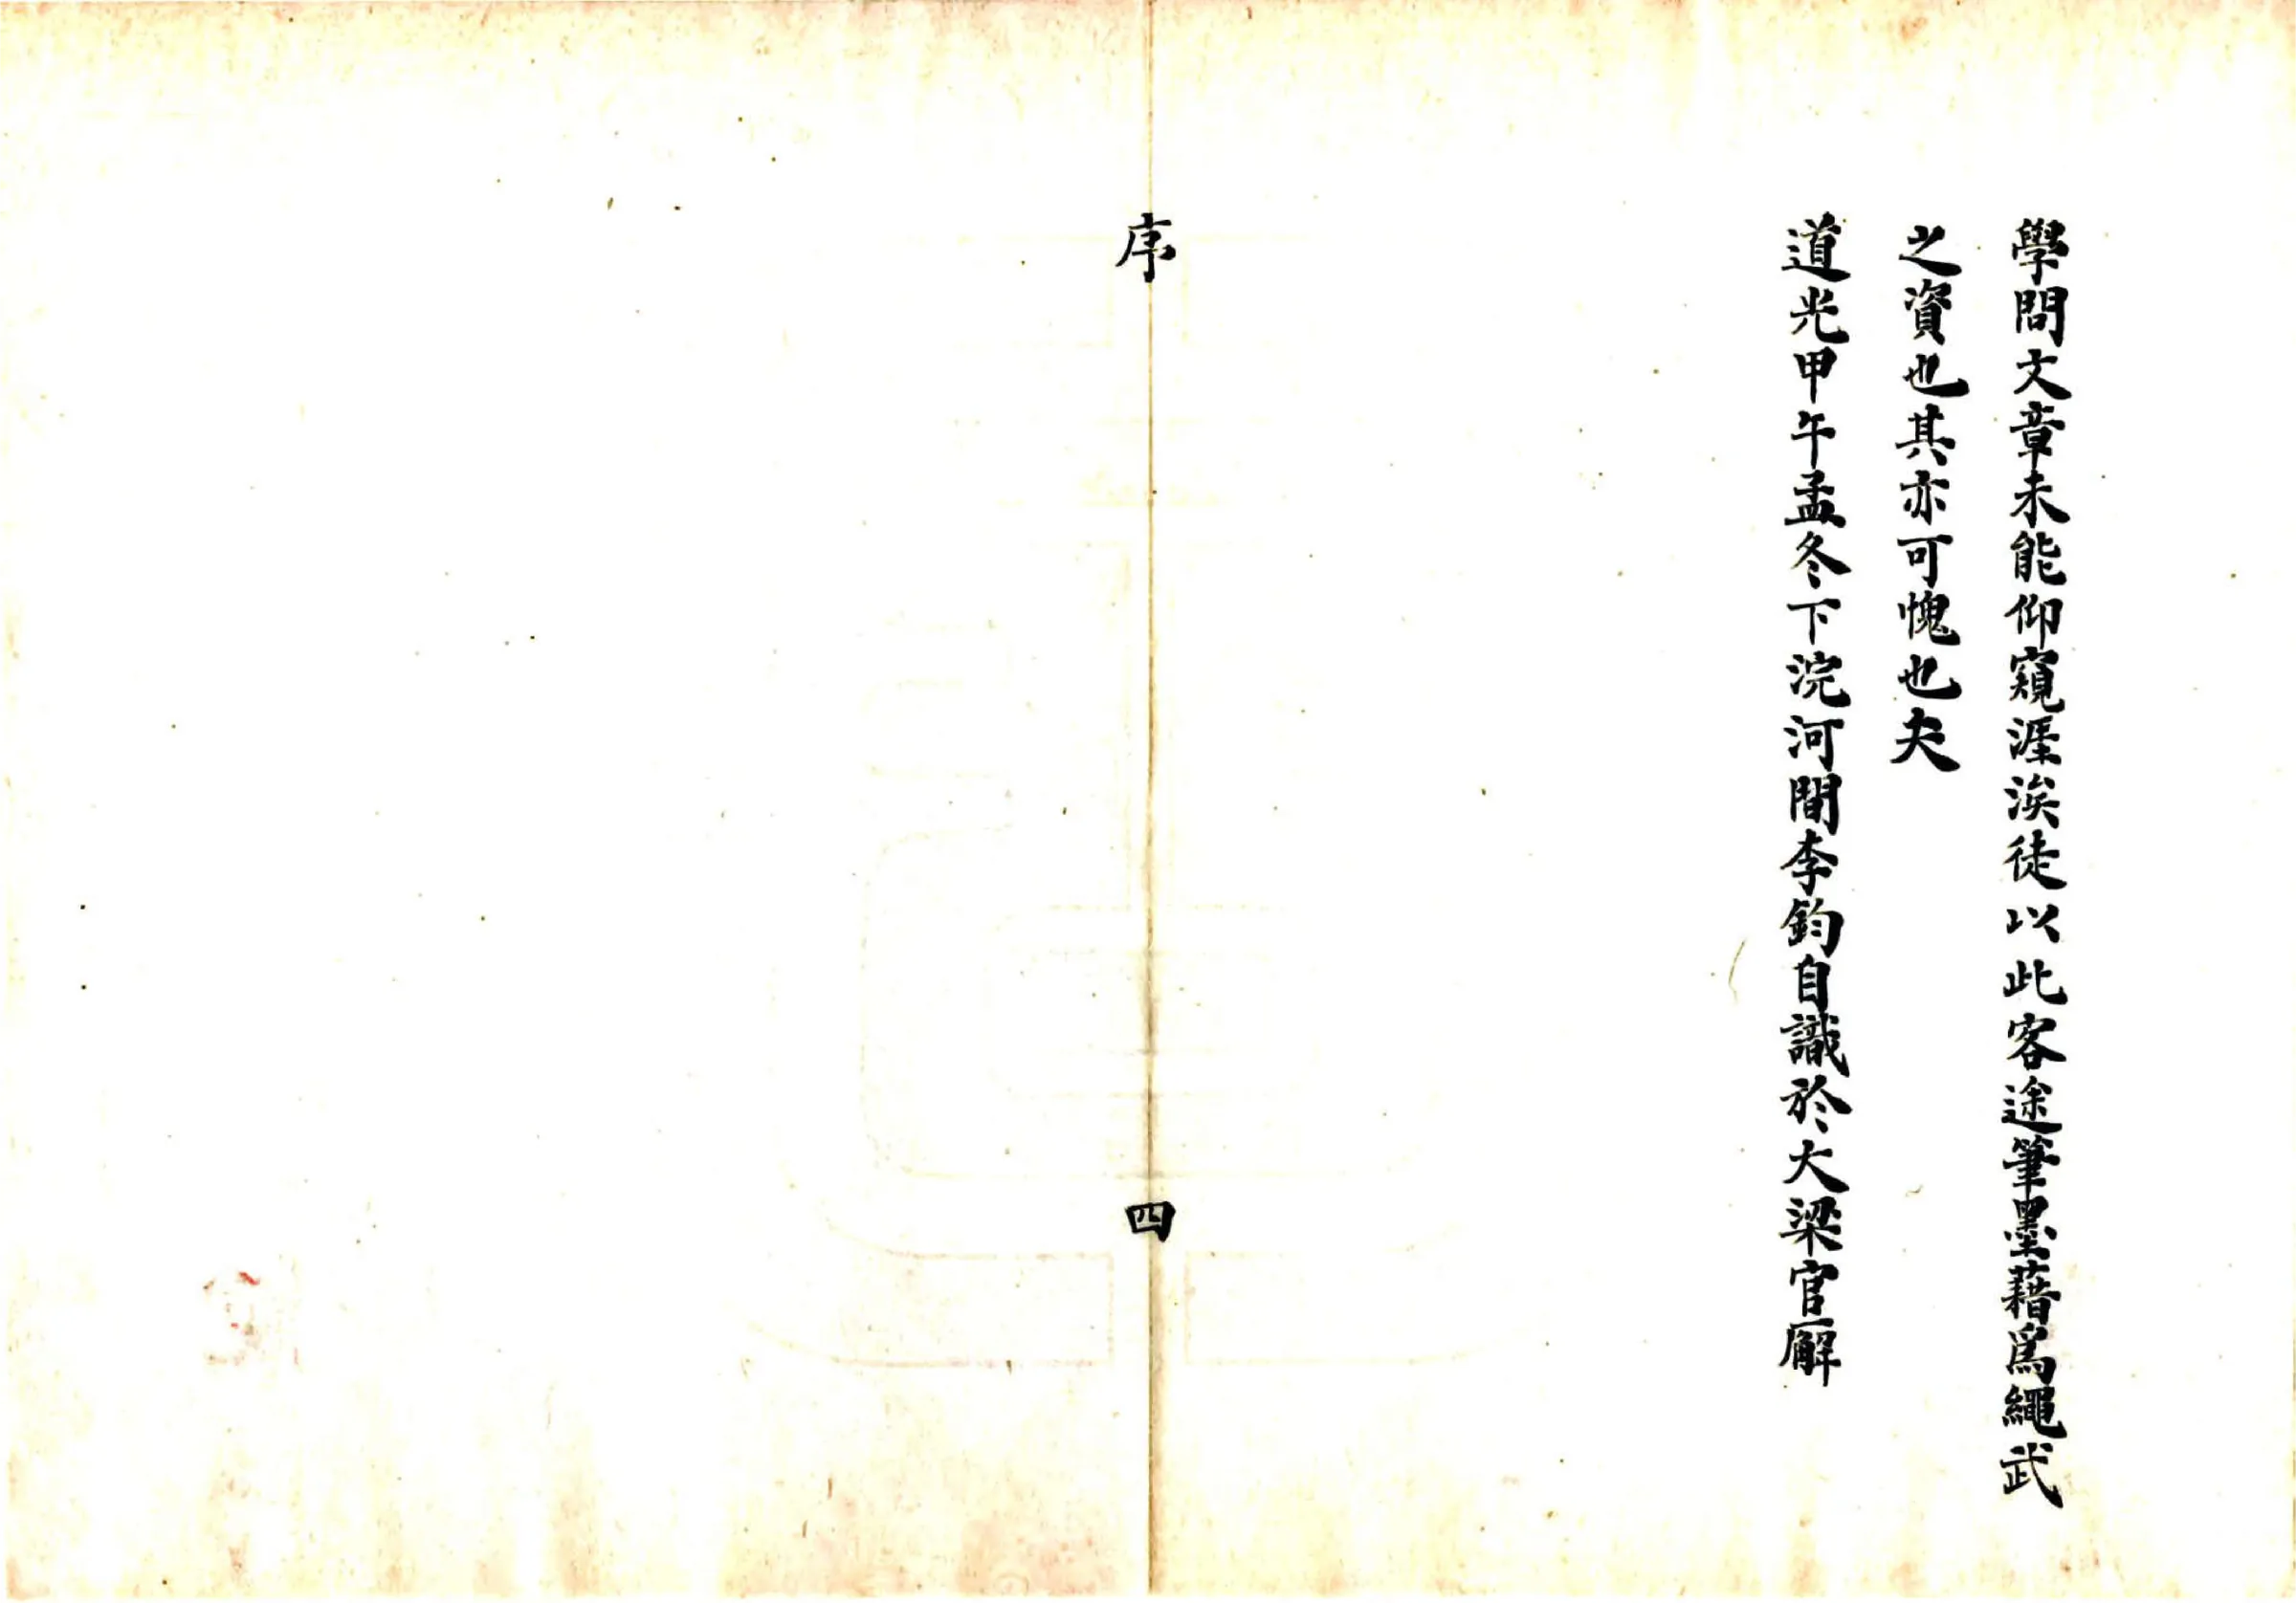 學問文章未能仰窺涯涘徒以此客途筆墨藉爲繩武
之資也其亦可愧也夫
道光甲午孟冬下浣河間李鈞自識於大梁官廨
序
四